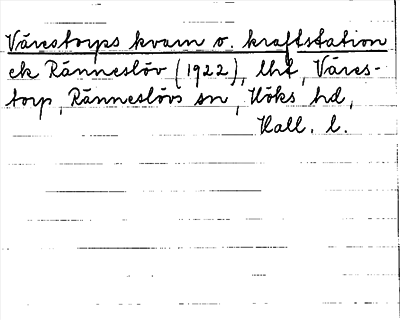 Vårestorps kvarn o. kraftstation
ek Ränneslöv (1922), lht, Våres-
torp, Ränneslövs sn, Höks hd,
Hall. l.